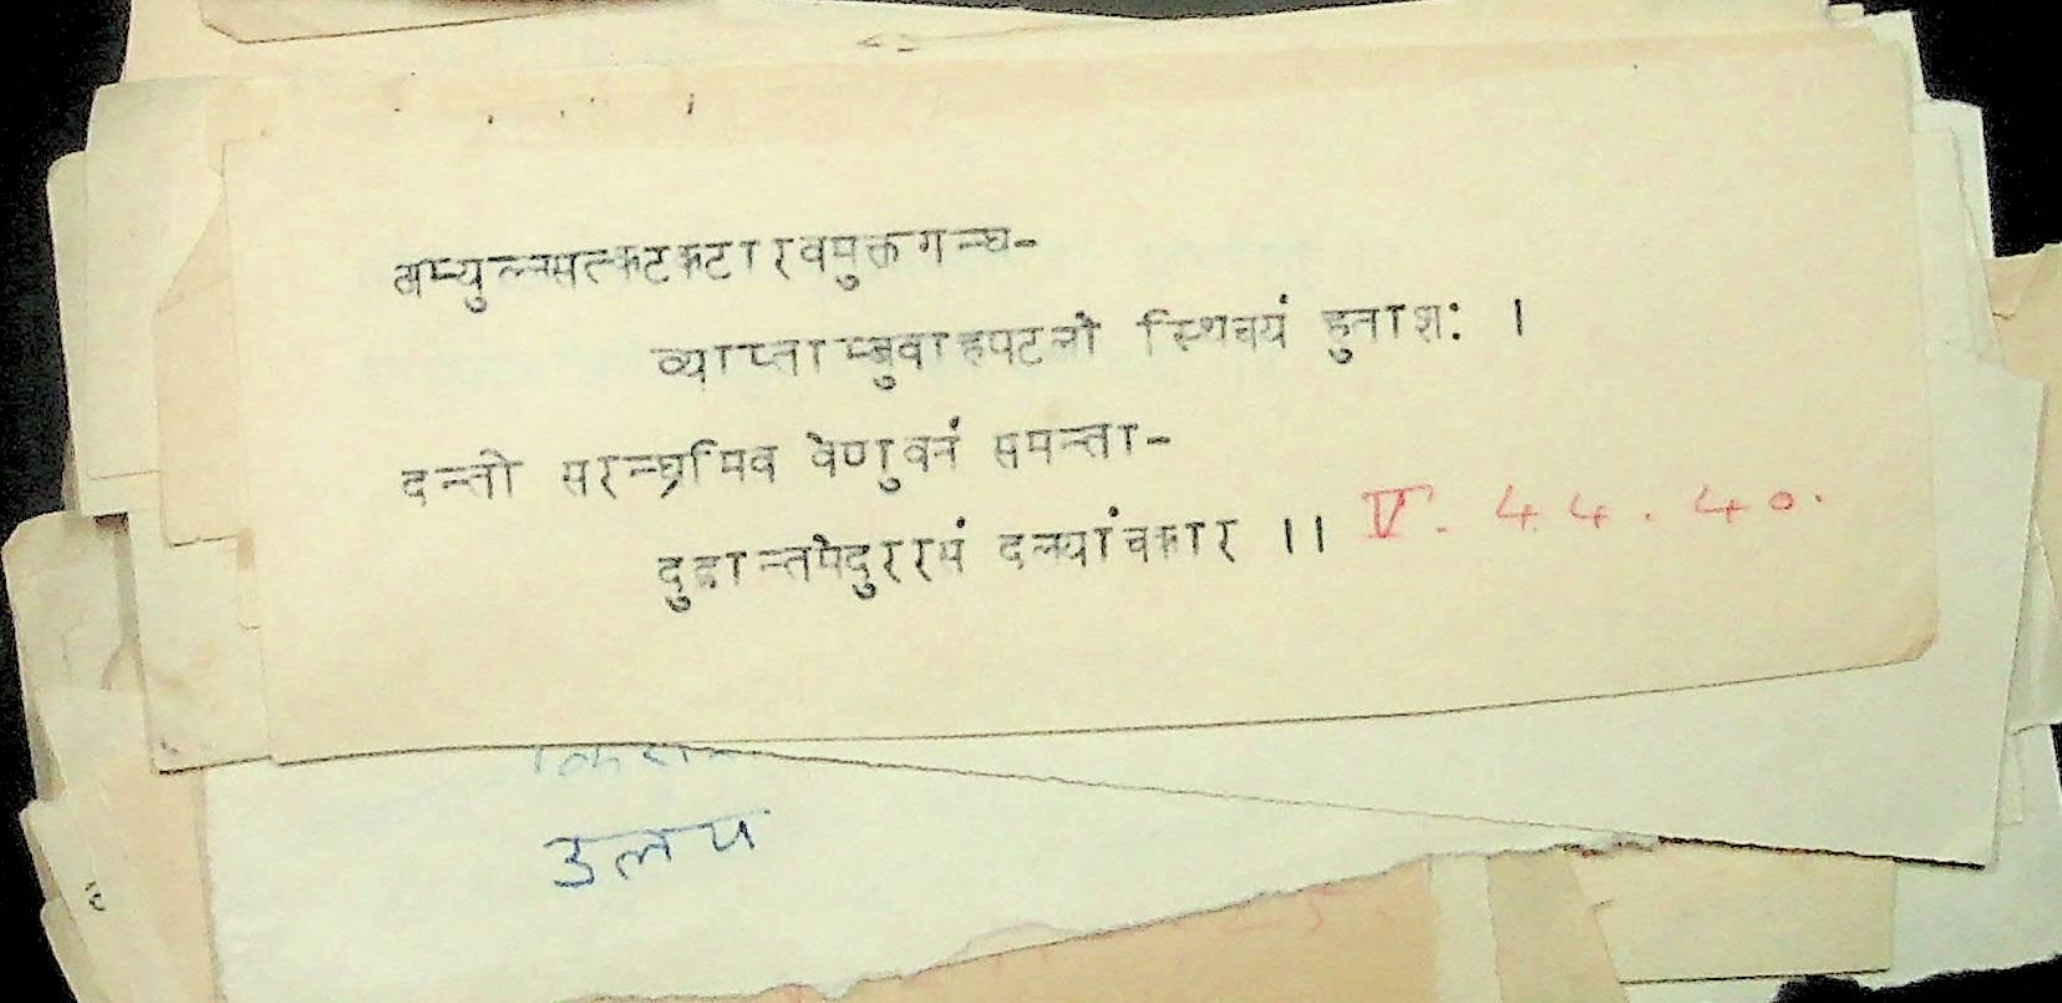 अभ्युल्लसत्कटकटारवमुक्तगन्ध-
व्याप्ताम्बुवाहपटलो स्थिचयं हुताशः ।
दन्तो सरन्ध्रमिव वेणुवनं समन्ता-
दुद्वान्तमेदुररसं दलयांचकार ।। V. 44. 40.
उलप